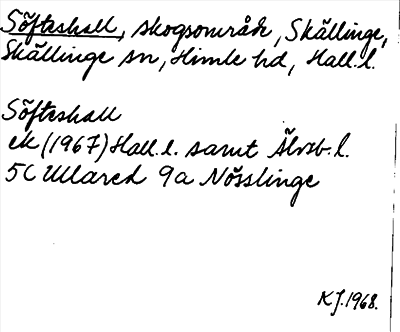 Söfteshall, skogsområde, Skällinge,
Skällinge sn, Himle hd, Hall. l.
Söfteshall
ek (1967) Hall. l. samt Älvsb. l.
5C Ullared 9a Nösslinge
K.J. 1968.